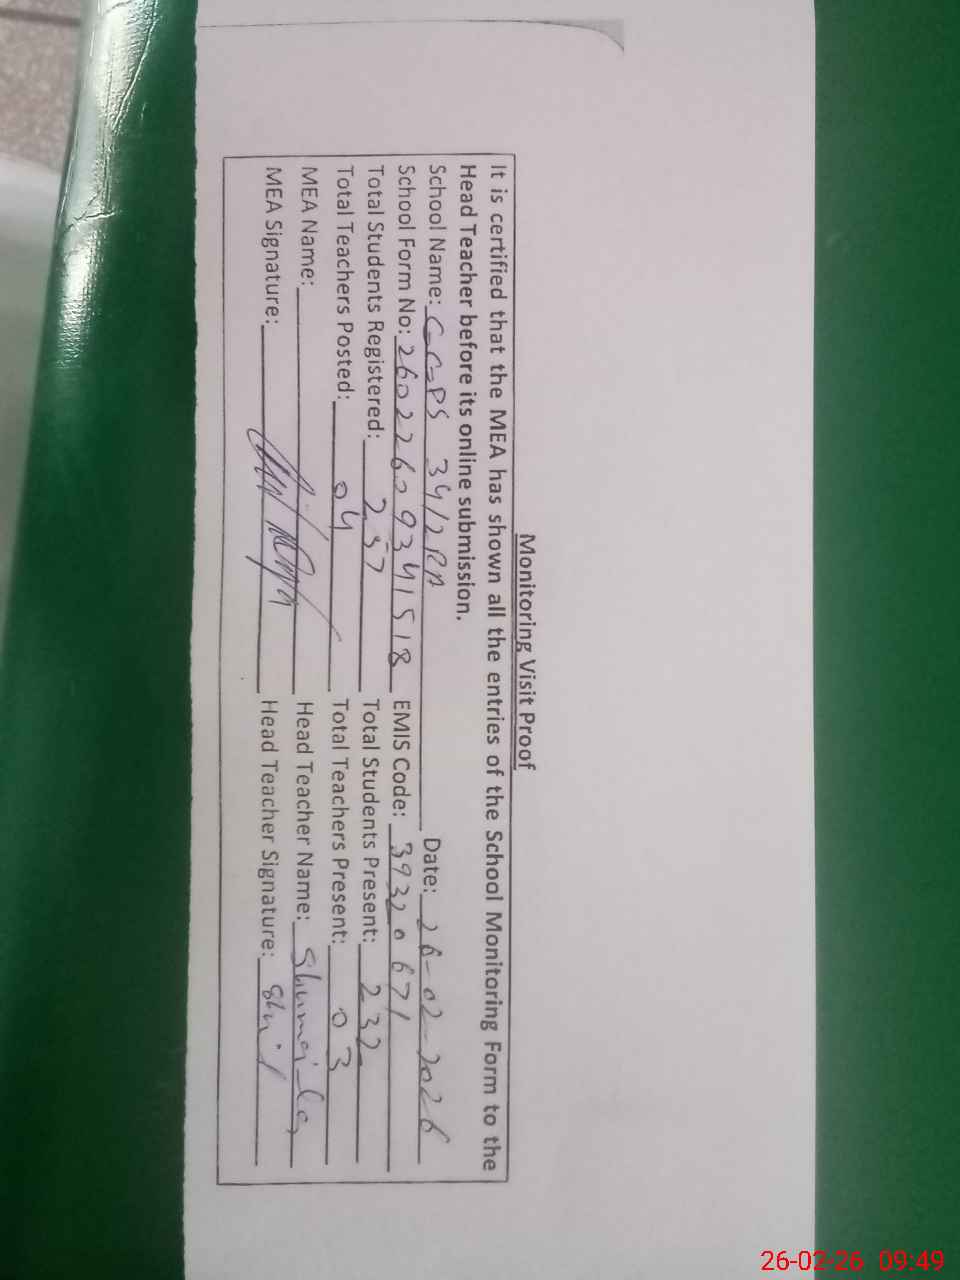 Monitoring Visit Proof
It is certified that the MEA has shown all the entries of the School Monitoring Form to the
Head Teacher before its online submission.
School Name: GGPS 34/2RA Date: 26-02-2026
School Form No: 26022609341518 EMIS Code: 39320671
Total Students Registered: 237 Total Students Present: 232
Total Teachers Posted: 04 Total Teachers Present: 03
MEA Name: Head Teacher Name: Shumaila
MEA Signature: Head Teacher Signature:
26-02-26 09:49